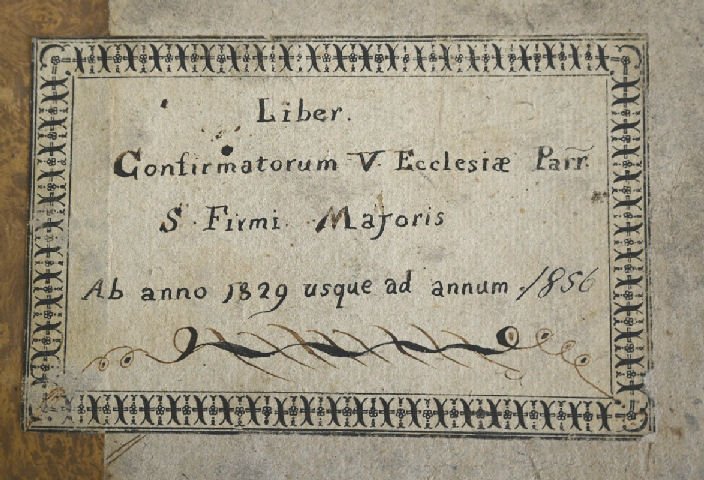 Liber.
Confirmatorum V. Ecclesiæ Parr̃.
S. Firmi Majoris
Ab anno 1829 usque ad annum 1856